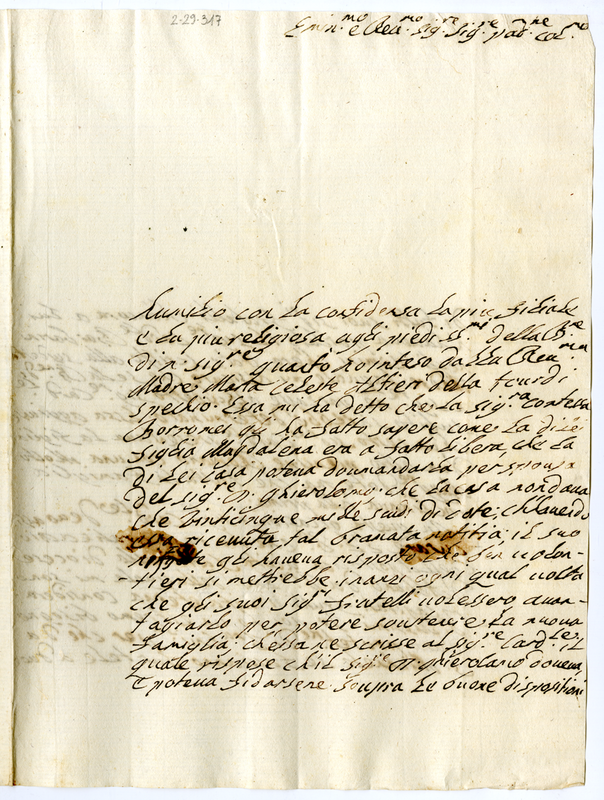 2-29-317
Emin.mo e Reu.mo Sig.re Sig.re pad.ne col.mo
humilio con la confidensa la piu filiale
e la piu religiosa agli piedi SS.mi della B.ne
di n. sig.re quanto ho inteso da la Reu.da
Madre Maria Celeste Altieri della Tour di
spechio. Essa mi ha detto che la sig.ra contessa
Borromei gli ha fatto sapere come la di lei
figlia Magdalena era a fatto libera, che la
di lei casa poteva domandarla per sposa
del sig.re D. Ghierolomo, che la casa non daua
che vinticinque mila scudi di Dote; ch'havendo
essa riceuuta tal notitia, il suo
nipote gli haueua risposto che ben uolon-
tieri si mettrebbe inanzi ogni qual uolta
che gli suoi sig.ri fratelli uolessero auan-
tagiarlo per potere soutenire la nuoua
famiglia; ch'essa ne scrisse al sig.re Card.le, il
quale rispose ch'il sig.re D. Ghierolamo doueua
e poteua fidarsene soupra le buone dispositioni